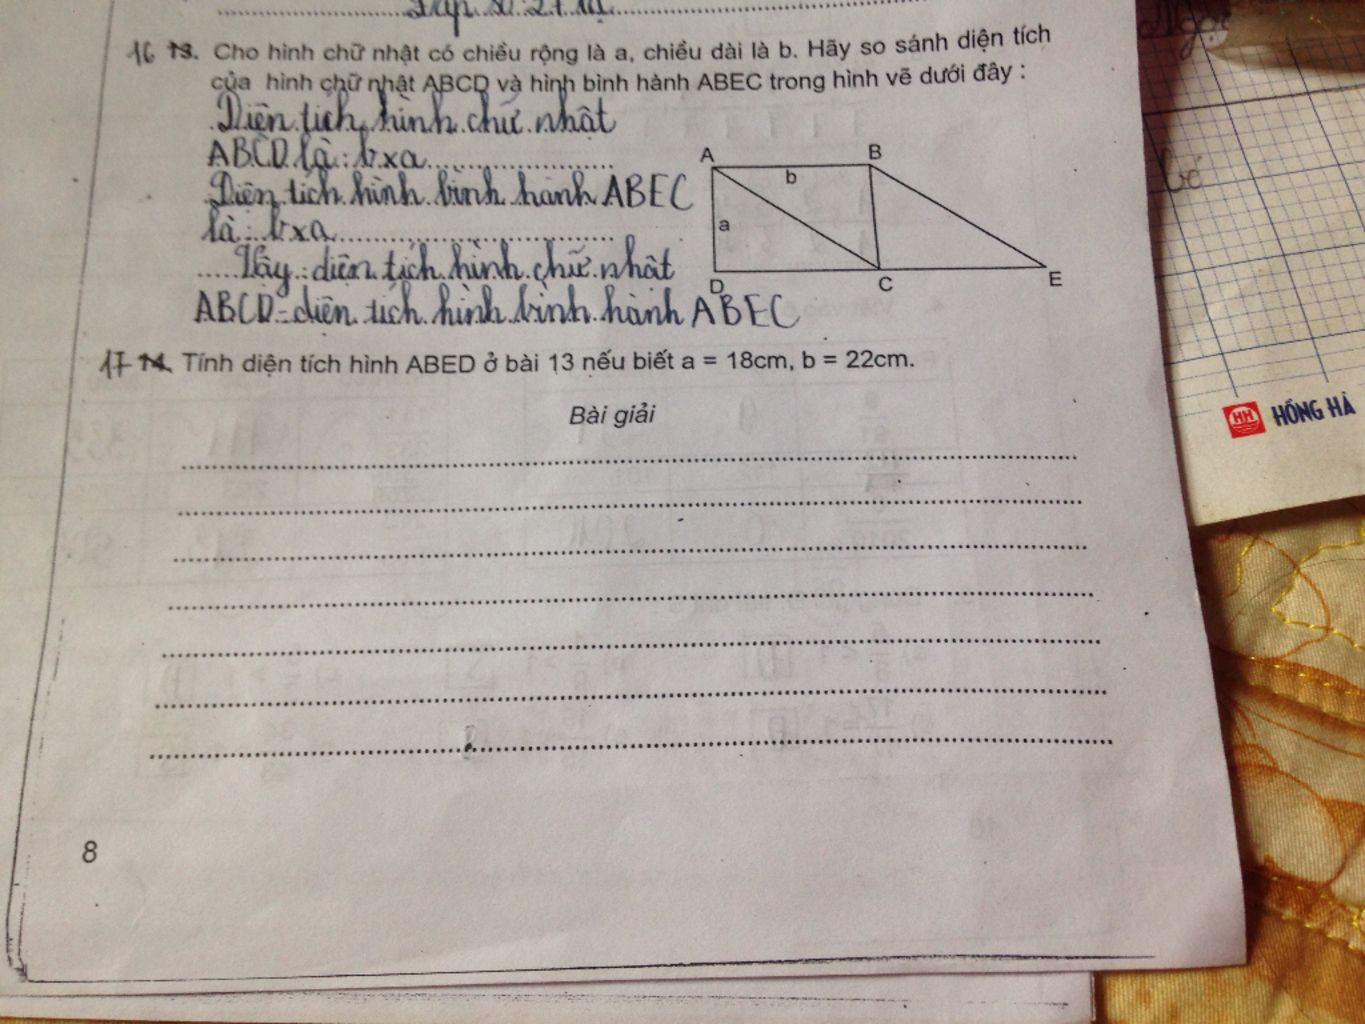 Đáp số: 27
16 13. Cho hình chữ nhật có chiều rộng là a, chiều dài là b. Hãy so sánh diện tích
của hình chữ nhật ABCD và hình bình hành ABEC trong hình vẽ dưới đây :
Diện tích hình chữ nhật
ABCD là : b x a
Diện tích hình bình hành ABEC
là : b x a
Vậy : diện tích hình chữ nhật
ABCD = diện tích hình bình hành ABEC
A B
b
a
D C E
17 14. Tính diện tích hình ABED ở bài 13 nếu biết a = 18cm, b = 22cm.
Bài giải
8
HH HỒNG HÀ